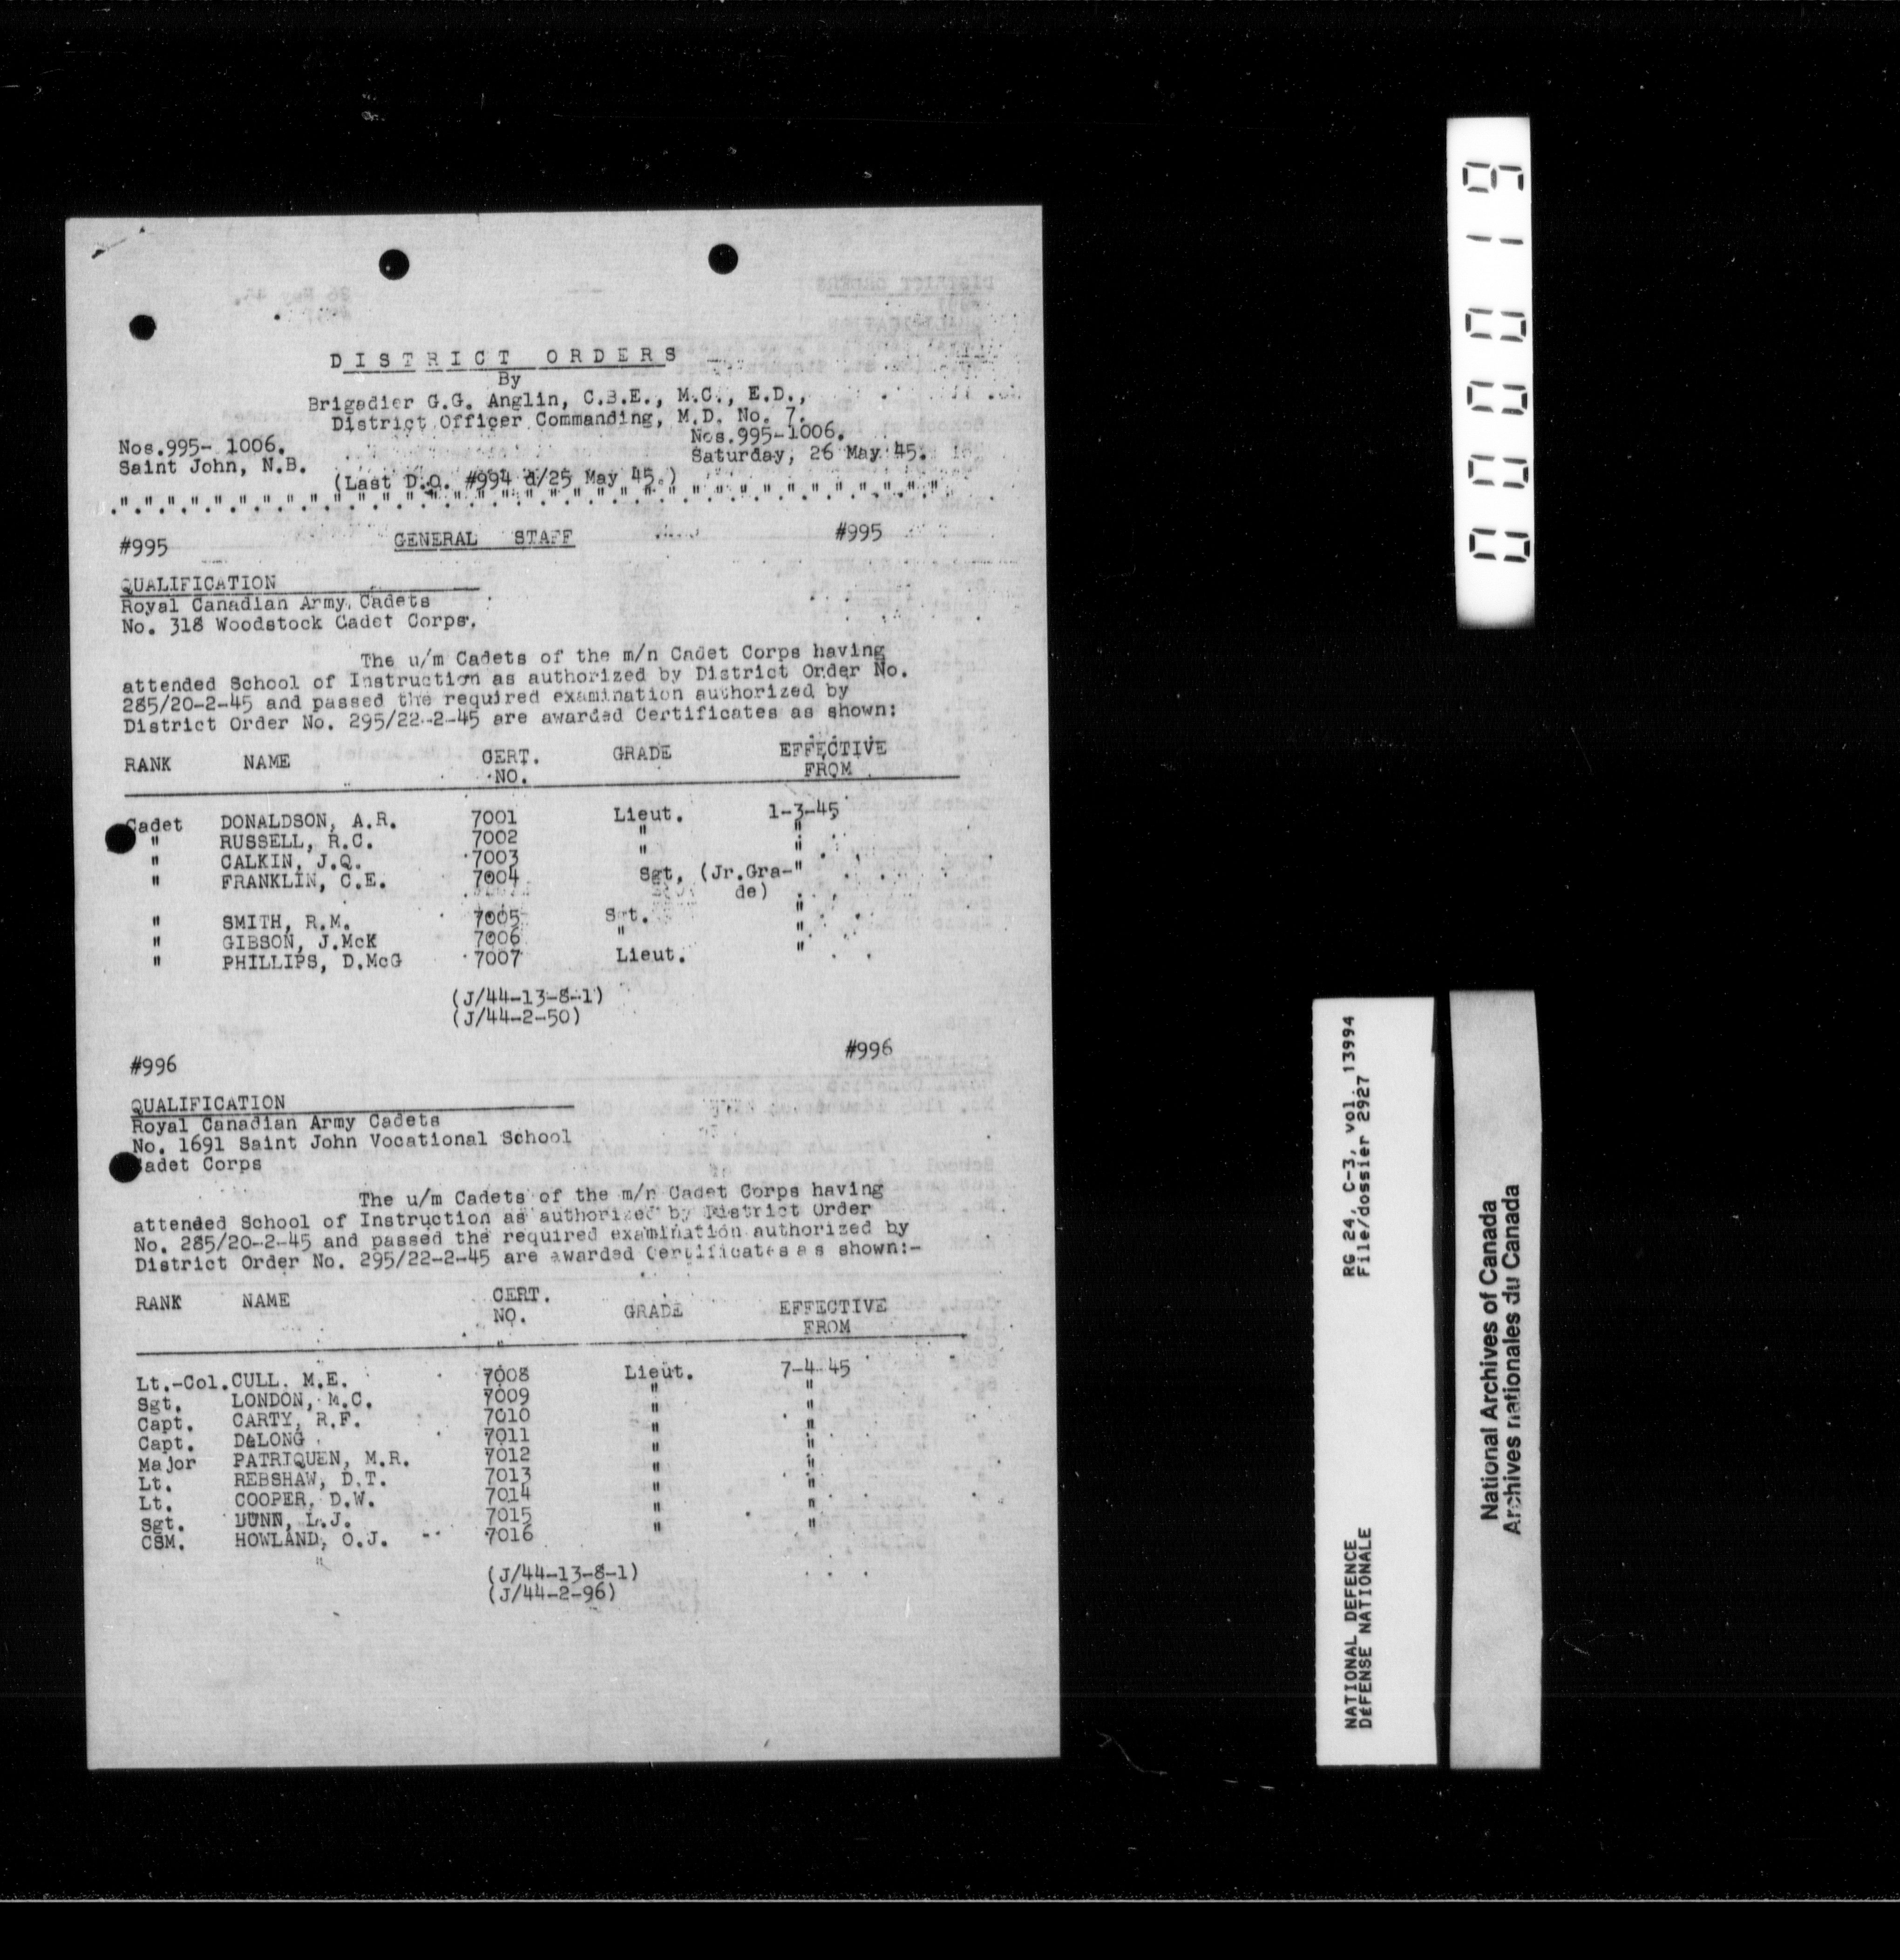 DISTRICT ORDERS
By
Brigadier G.G. Anglin, C.B.E., M.C., E.D.,
District Officer Commanding, M.D. No. 7.
Nos.995- 1006. Nos.995-1006.
Saint John, N.B. Saturday, 26 May 45.
(Last D.O. #994 d/25 May 45.)
".".".".".".".".".".".".".".".".".".".".".".".".".".".".".".".".".".
#995 GENERAL STAFF #995
QUALIFICATION
Royal Canadian Army Cadets
No. 318 Woodstock Cadet Corps.
The u/m Cadets of the m/n Cadet Corps having
attended School of Instruction as authorized by District Order No.
285/20-2-45 and passed the required examination authorized by
District Order No. 295/22-2-45 are awarded Certificates as shown:
RANK NAME CERT. NO. GRADE EFFECTIVE FROM
Cadet DONALDSON, A.R. 7001 Lieut. 1-3-45
" RUSSELL, R.C. 7002 " "
" CALKIN, J.Q. 7003 " "
" FRANKLIN, C.E. 7004 Sgt. (Jr.Gra- "
de)
" SMITH, R.M. 7005 Sgt. "
" GIBSON, J.McK 7006 " "
" PHILLIPS, D.McG 7007 Lieut. "
(J/44-13-8-1)
(J/44-2-50)
#996 #996
QUALIFICATION
Royal Canadian Army Cadets
No. 1691 Saint John Vocational School
Cadet Corps
The u/m Cadets of the m/n Cadet Corps having
attended School of Instruction as authorized by District Order
No. 285/20-2-45 and passed the required examination authorized by
District Order No. 295/22-2-45 are awarded Certificates as shown:-
RANK NAME CERT. NO. GRADE EFFECTIVE FROM
Lt.-Col. CULL. M.E. 7008 Lieut. 7-4-45
Sgt. LONDON, M.C. 7009 " "
Capt. CARTY, R.F. 7010 " "
Capt. DeLONG 7011 " "
Major PATRIQUEN, M.R. 7012 " "
Lt. REBSHAW, D.T. 7013 " "
Lt. COOPER, D.W. 7014 " "
Sgt. DUNN, L.J. 7015 " "
CSM. HOWLAND, O.J. 7016 " "
(J/44-13-8-1)
(J/44-2-96)
000019
NATIONAL DEFENCE RG 24, C-3, vol. 13994
DéFENSE NATIONALE File/dossier 2927
National Archives of Canada
Archives nationales du Canada